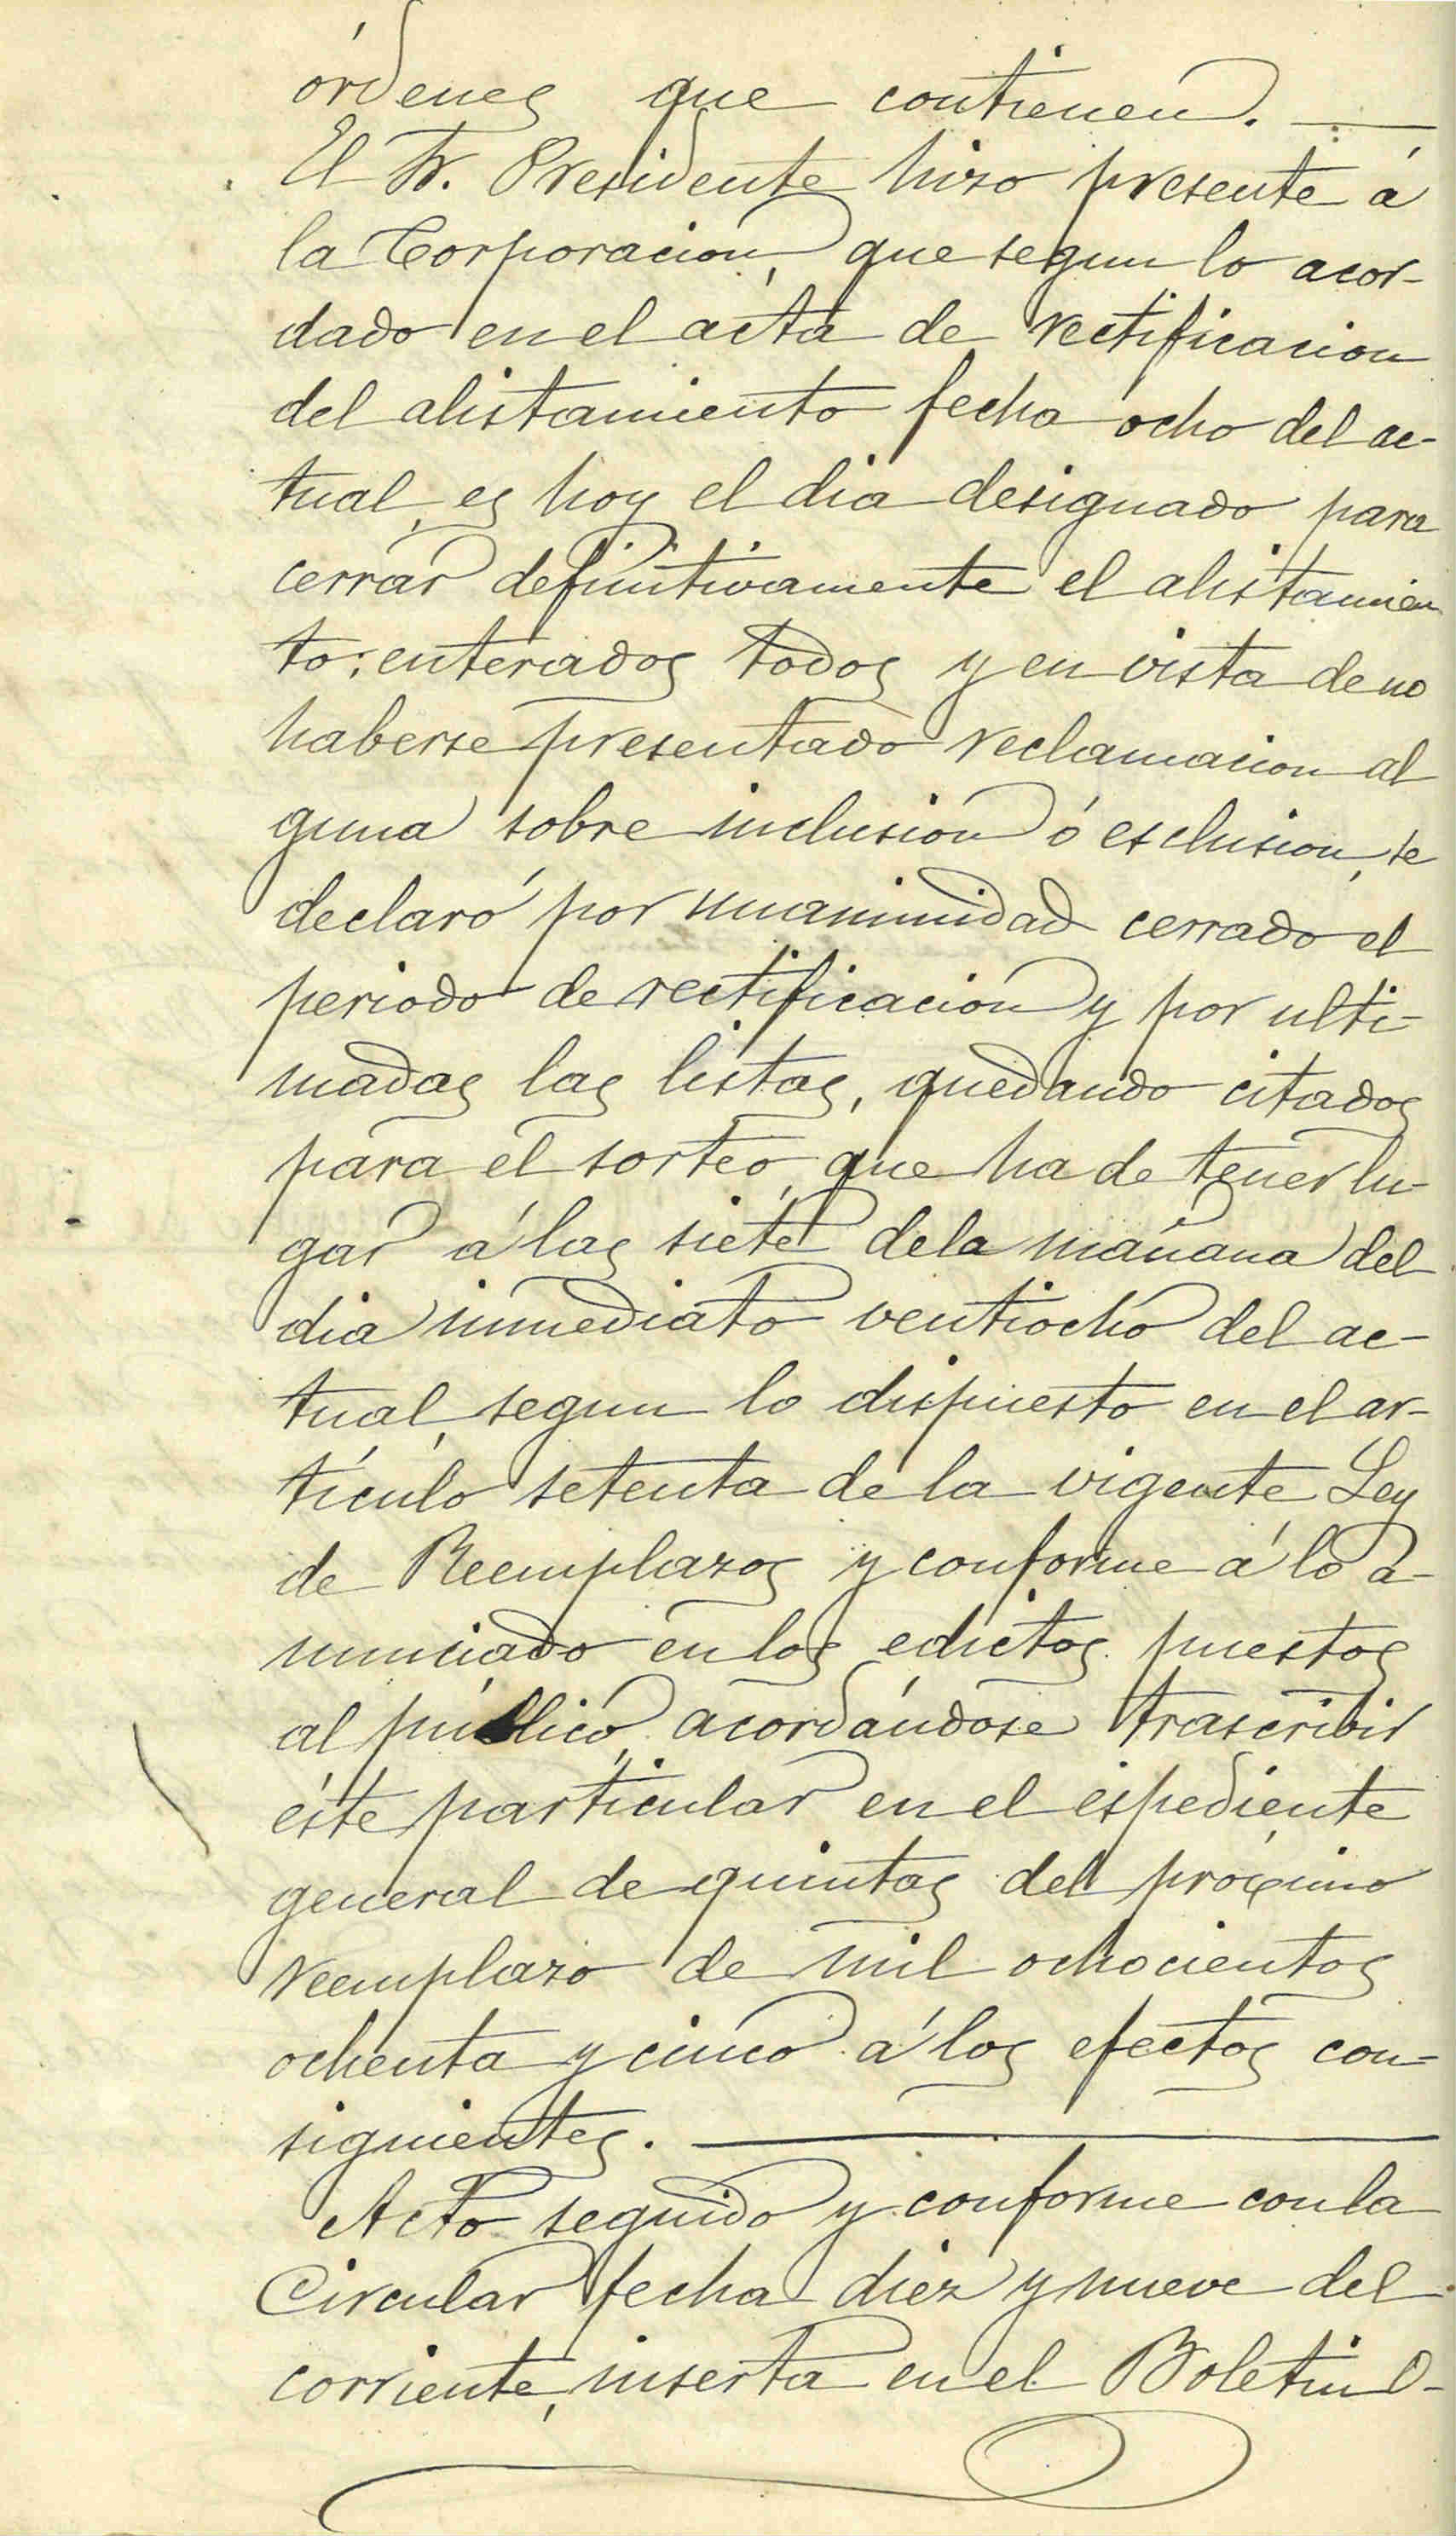 órdenes que contienen.
El Sr. Presidente hizo presente á
la Corporacion, que segun lo acor-
dado en el acta de rectificacion
del alistamiento fecha ocho del ac-
tual, es hoy el dia designado para
cerrar definitivamente el alistamien
to: enterados todos y en vista de no
haberse presentado reclamacion al
guna sobre inclusion ó esclusion, se
declaró por unanimidad cerrado el
periodo de rectificacion y por ulti-
madas las listas, quedando citados
para el sorteo, que ha de tener lu-
gar á las siete de la mañana del
dia inmediato ventiocho del ac-
tual, segun lo dispuesto en el ar-
tículo setenta de la vigente Ley
de Reemplazos y conforme á lo a-
nunciado en los edictos puestos
al público, acordándose trascribir
éste particular en el espediente
general de quintas del próximo
reemplazo de mil ochocientos
ochenta y cinco á los efectos con-
siguientes.
Acto seguido y conforme con la
Circular fecha diez y nueve del
corriente, inserta en el Boletin O-